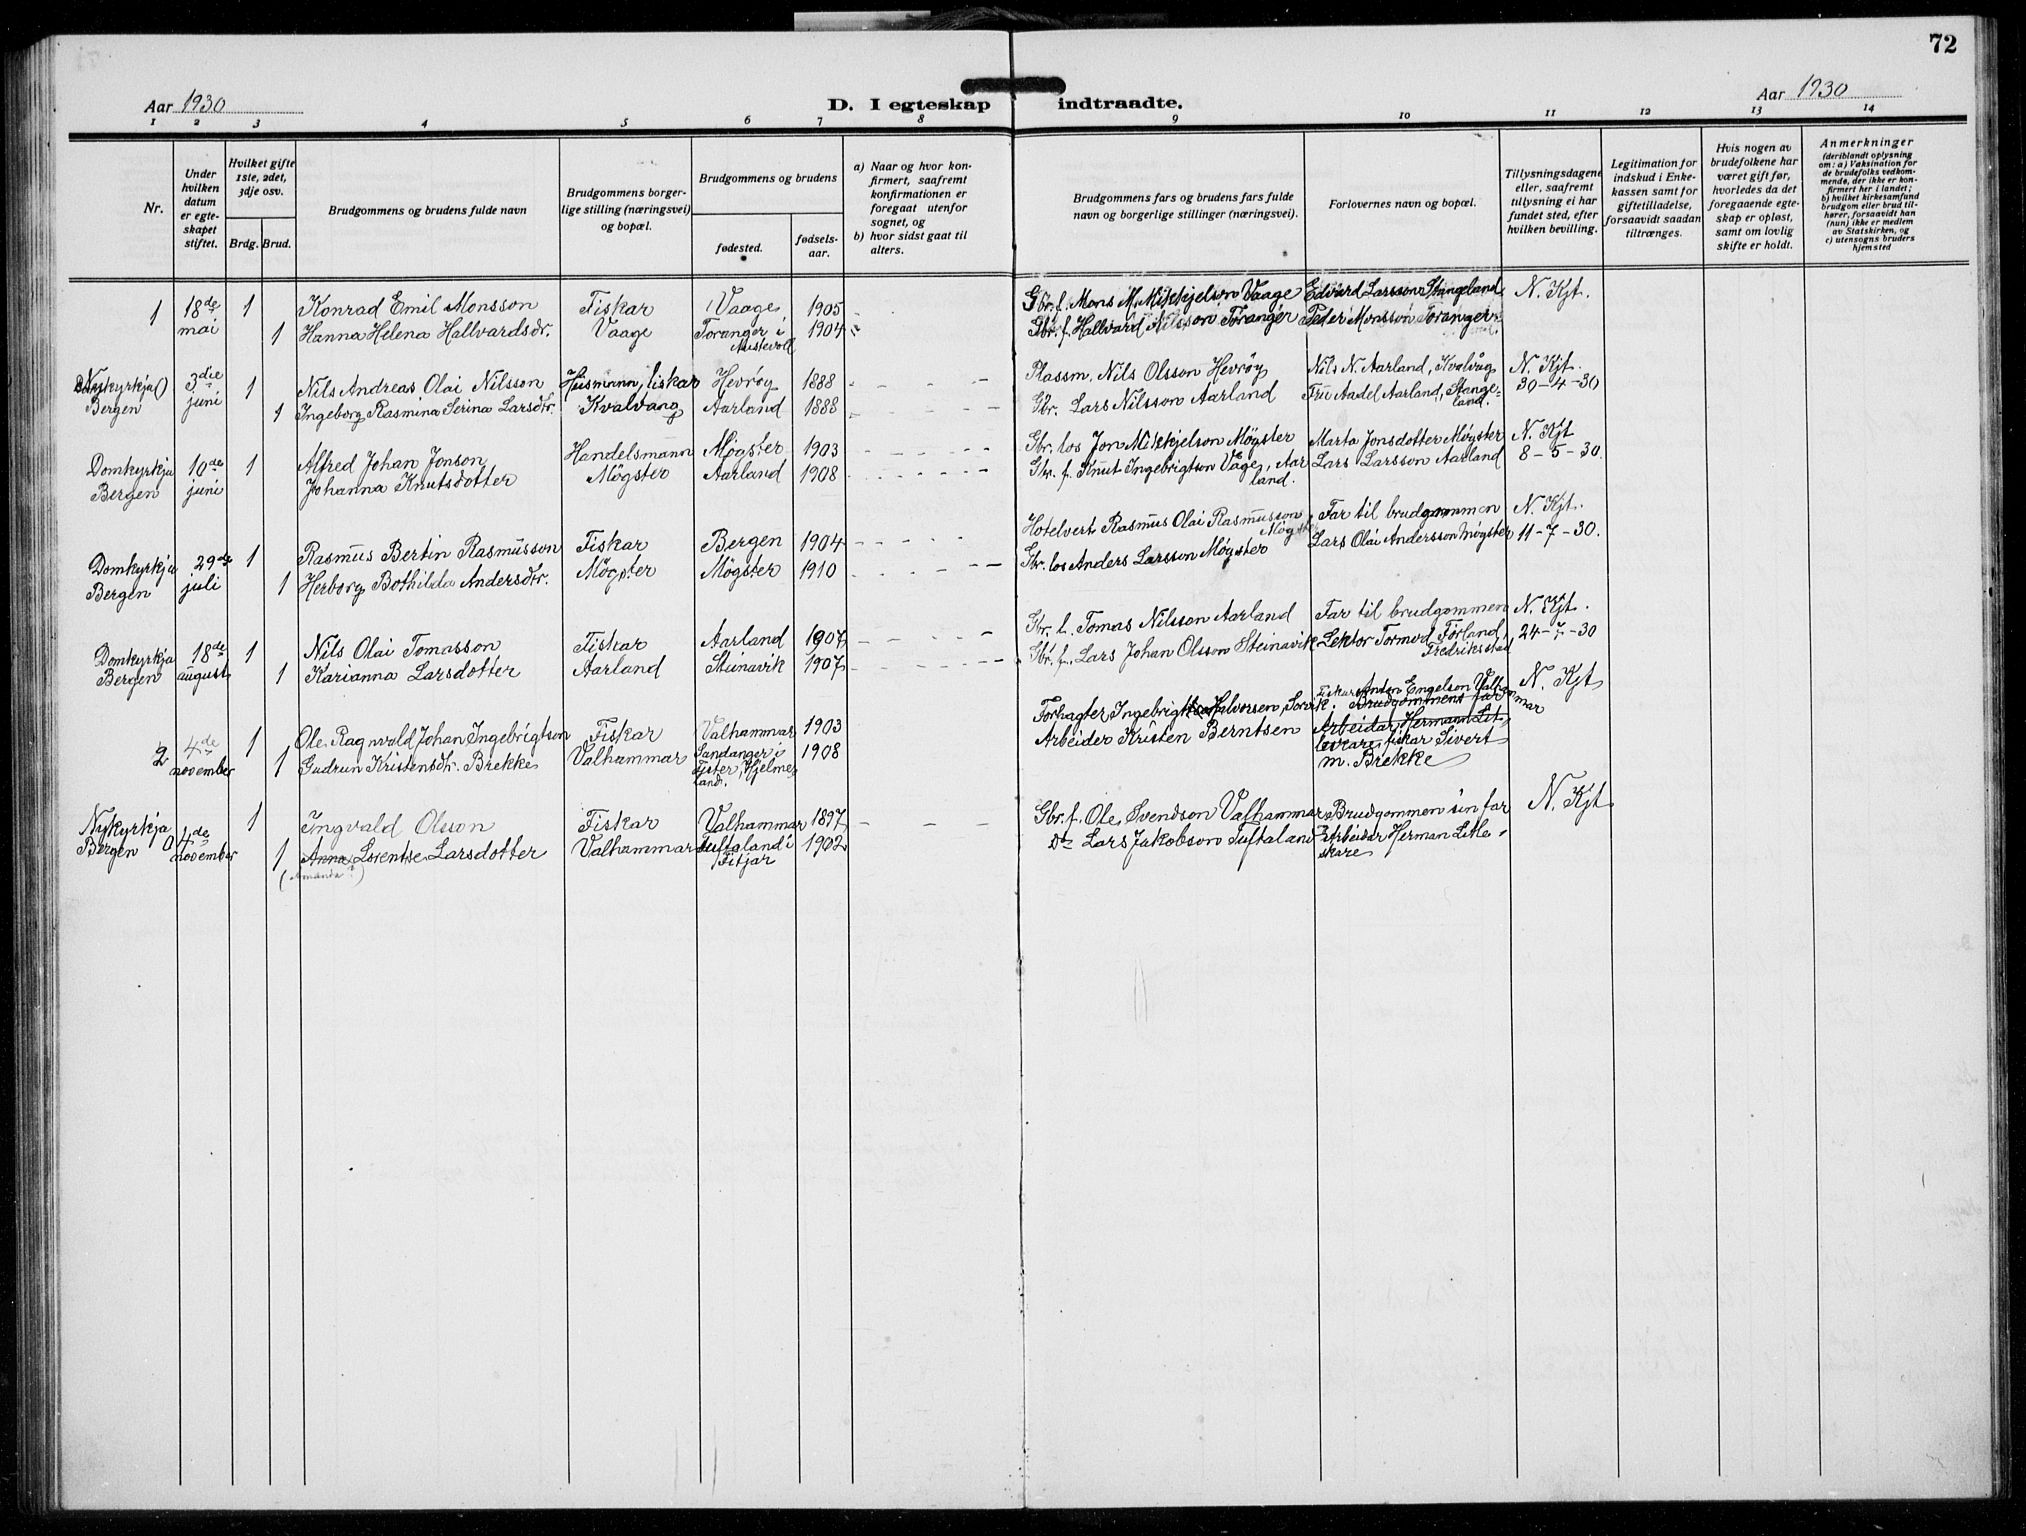 72
Aar 1930
D. I egteskap indtraadte.
Aar 1930
1 2 3 4 5 6 7 8 9 10 11 12 13 14
Nr.
Under hvilken datum er egteskapet stiftet.
Hvilket gifte 1ste, 2det, 3dje osv.
Brdg. Brud.
Brudgommens og brudens fulde navn
Brudgommens borgerlige stilling (næringsvei) og bopæl.
Brudgommens og brudens
fødested.
fødselsaar.
a) Naar og hvor konfirmert, saafremt konfirmationen er foregaat utenfor sognet, og
b) hvor sidst gaat til alters.
Brudgommens fars og brudens fars fulde navn og borgerlige stillinger (næringsvei).
Forlovernes navn og bopæl.
Tillysningsdagene eller, saafremt tillysning ei har fundet sted, efter hvilken bevilling.
Legitimation for indskud i Enkekassen samt for giftetilladelse, forsaavidt saadan tiltrænges.
Hvis nogen av brudefolkene har været gift før, hvorledes da det foregaaende egteskap er opløst, samt om lovlig skifte er holdt.
Anmerkninger (deriblandt oplysning om: a) Vaksination for de brudefolks vedkommende, der ikke er konfirmert her i landet; b) hvilket kirkesamfund brudgom eller brud tilhører, forsaavidt han (hun) ikke er medlem av Statskirken, og c) utensogns bruders hjemsted
1 18de 1 Konrad Emil Monsson Fiskar Vaage 1905 Gbr. f. Mons M. Mikkjelson Vaage Edvard Larsson Stangeland N. Kjt.
mai 1 Hanna Helena Hallvardsdr. Vaage Toranger i Austevoll 1904 Gbr. f. Hallvard Nilsson Toranger Peder Monsson Toranger
Nykyrkja 3die 1 Nils Andreas Olai Nilsson Husmann, fiskar Hevrøy 1888 Plassm. Nils Olsson Hevrøy Nils N. Aarland, Kvalvåg N. Kjt.
Bergen juni 1 Ingeborg Rasmina Serina Larsdtr. Kvalvang Aarland 1888 Gbr. Lars Nilsson Aarland Fru Aadel Aarland, Stangeland. 30-4-30
Domkyrkja 10de 1 Alfred Johan Jonson Handelsmann Møgster 1903 Gbr. los Jon Mikkjelson Møgster Marta Jonsdotter Møgster N. Kjt
Bergen juni Johanna Knutsdotter Møgster Aarland 1908 Gbr. f. Knut Ingebrigtson Våge, Aarland. Lars Larsson Aarland 8-5-30.
Domkyrkja 29de 1 Rasmus Bertin Rasmusson Fiskar Bergen 1904 Hotelvert Rasmus Olai Rasmusson Møgster Far til brudgommen N. Kjt.
Bergen juli 1 Herborg Bothilda Andersdtr. Møgster Møgster 1910 Gbr. los Anders Larsson Møgster Lars Olai Andersson Møgster 11-7-30.
Domkyrkja 18de 1 Nils Olai Tomasson Fiskar Aarland 1907 Gbr. f. Tomas Nilsson Aarland Far til brudgommen N. Kjt.
Bergen august 1 Karianna Larsdotter Aarland Steinavik 1907 Gbr. f. Lars Johan Olsson Steinavik Lektor Tormod Førland, Fredrikstad 24-7-30
2 4de 1 Ole Ragnvald Johan Ingebrigtson Fiskar Valhammar 1903 Forpagter Ingebrigt Halvorsen, Fiskar Anton Engelson Valhammar Brudgommens far N. Kjt
november 1 Gudrun Kristensdtr. Brekke Valhammar Sandanger i Fister, Hjelmeland. 1908 Arbeider Kristen Berntsen Arbeidar Hermann Litleskare, fiskar Sivert m. Brekke
Nykyrkja 4de 1 Ingvald Olsson Fiskar Valhammar 1897 Gbr. f. Ole Svendson Valhammar Brudgommen sin far N. Kjt
Bergen november 1 Anna Lorentse Larsdotter Valhammar Tuftaland i Fitjar 1902 Do Lars Jakobson Tuftaland Arbeidar Herman Litleskare
(Amanda?)